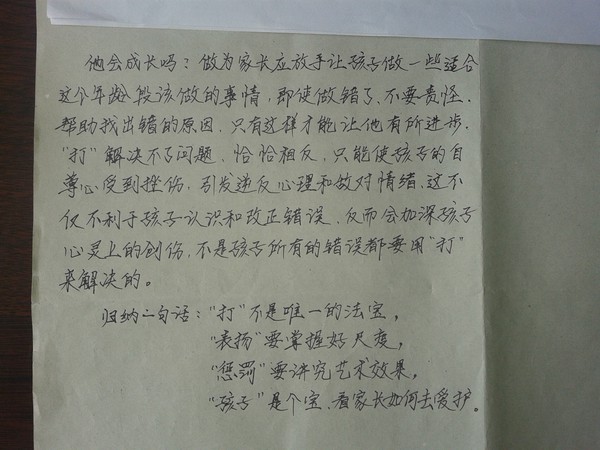 他会成长吗？做为家长应放手让孩子做一些适合
这个年龄段该做的事情，即使做错了，不要责怪，
帮助找出错的原因，只有这样才能让他有所进步，
“打”解决不了问题，恰恰相反，只能使孩子的自
尊心受到挫伤，引发逆反心理和敌对情绪，这不
仅不利于孩子认识和改正错误，反而会加深孩子
心灵上的创伤，不是孩子所有的错误都要用“打”
来解决的。
归纳二句话：“打”不是唯一的法宝，
“表扬”要掌握好尺度，
“惩罚”要讲究艺术效果，
“孩子”是个宝，看家长如何去爱护。